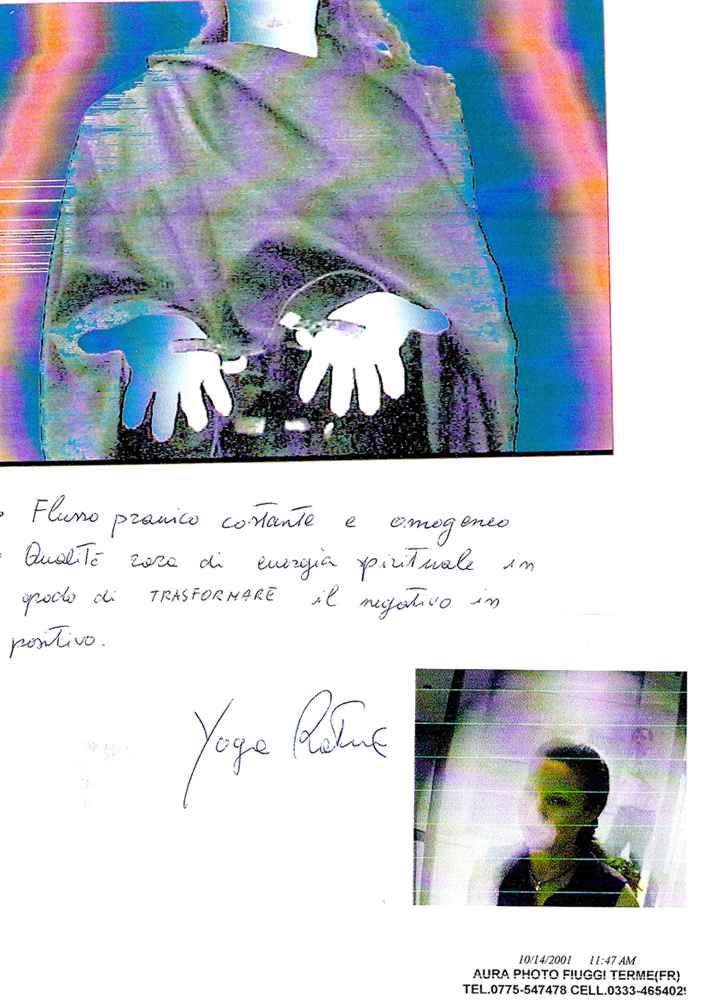 Flusso pranico costante e omogeneo
Qualità rara di energia spirituale in
grado di TRASFORMARE il negativo in
positivo.
Yoga Ratna
10/14/2001 11:47 AM
AURA PHOTO FIUGGI TERME(FR)
TEL.0775-547478 CELL.0333-465402